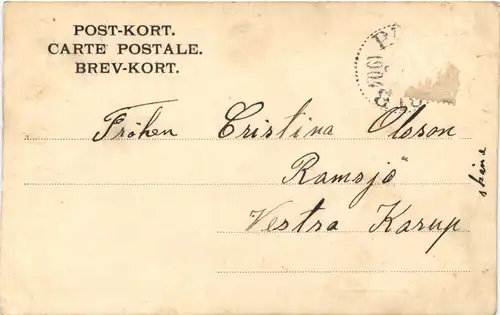 POST-KORT.
CARTE POSTALE.
BREV-KORT.
1904
Fröken Cristina Olsson
Ramsjö
Vestra Karup
skåne